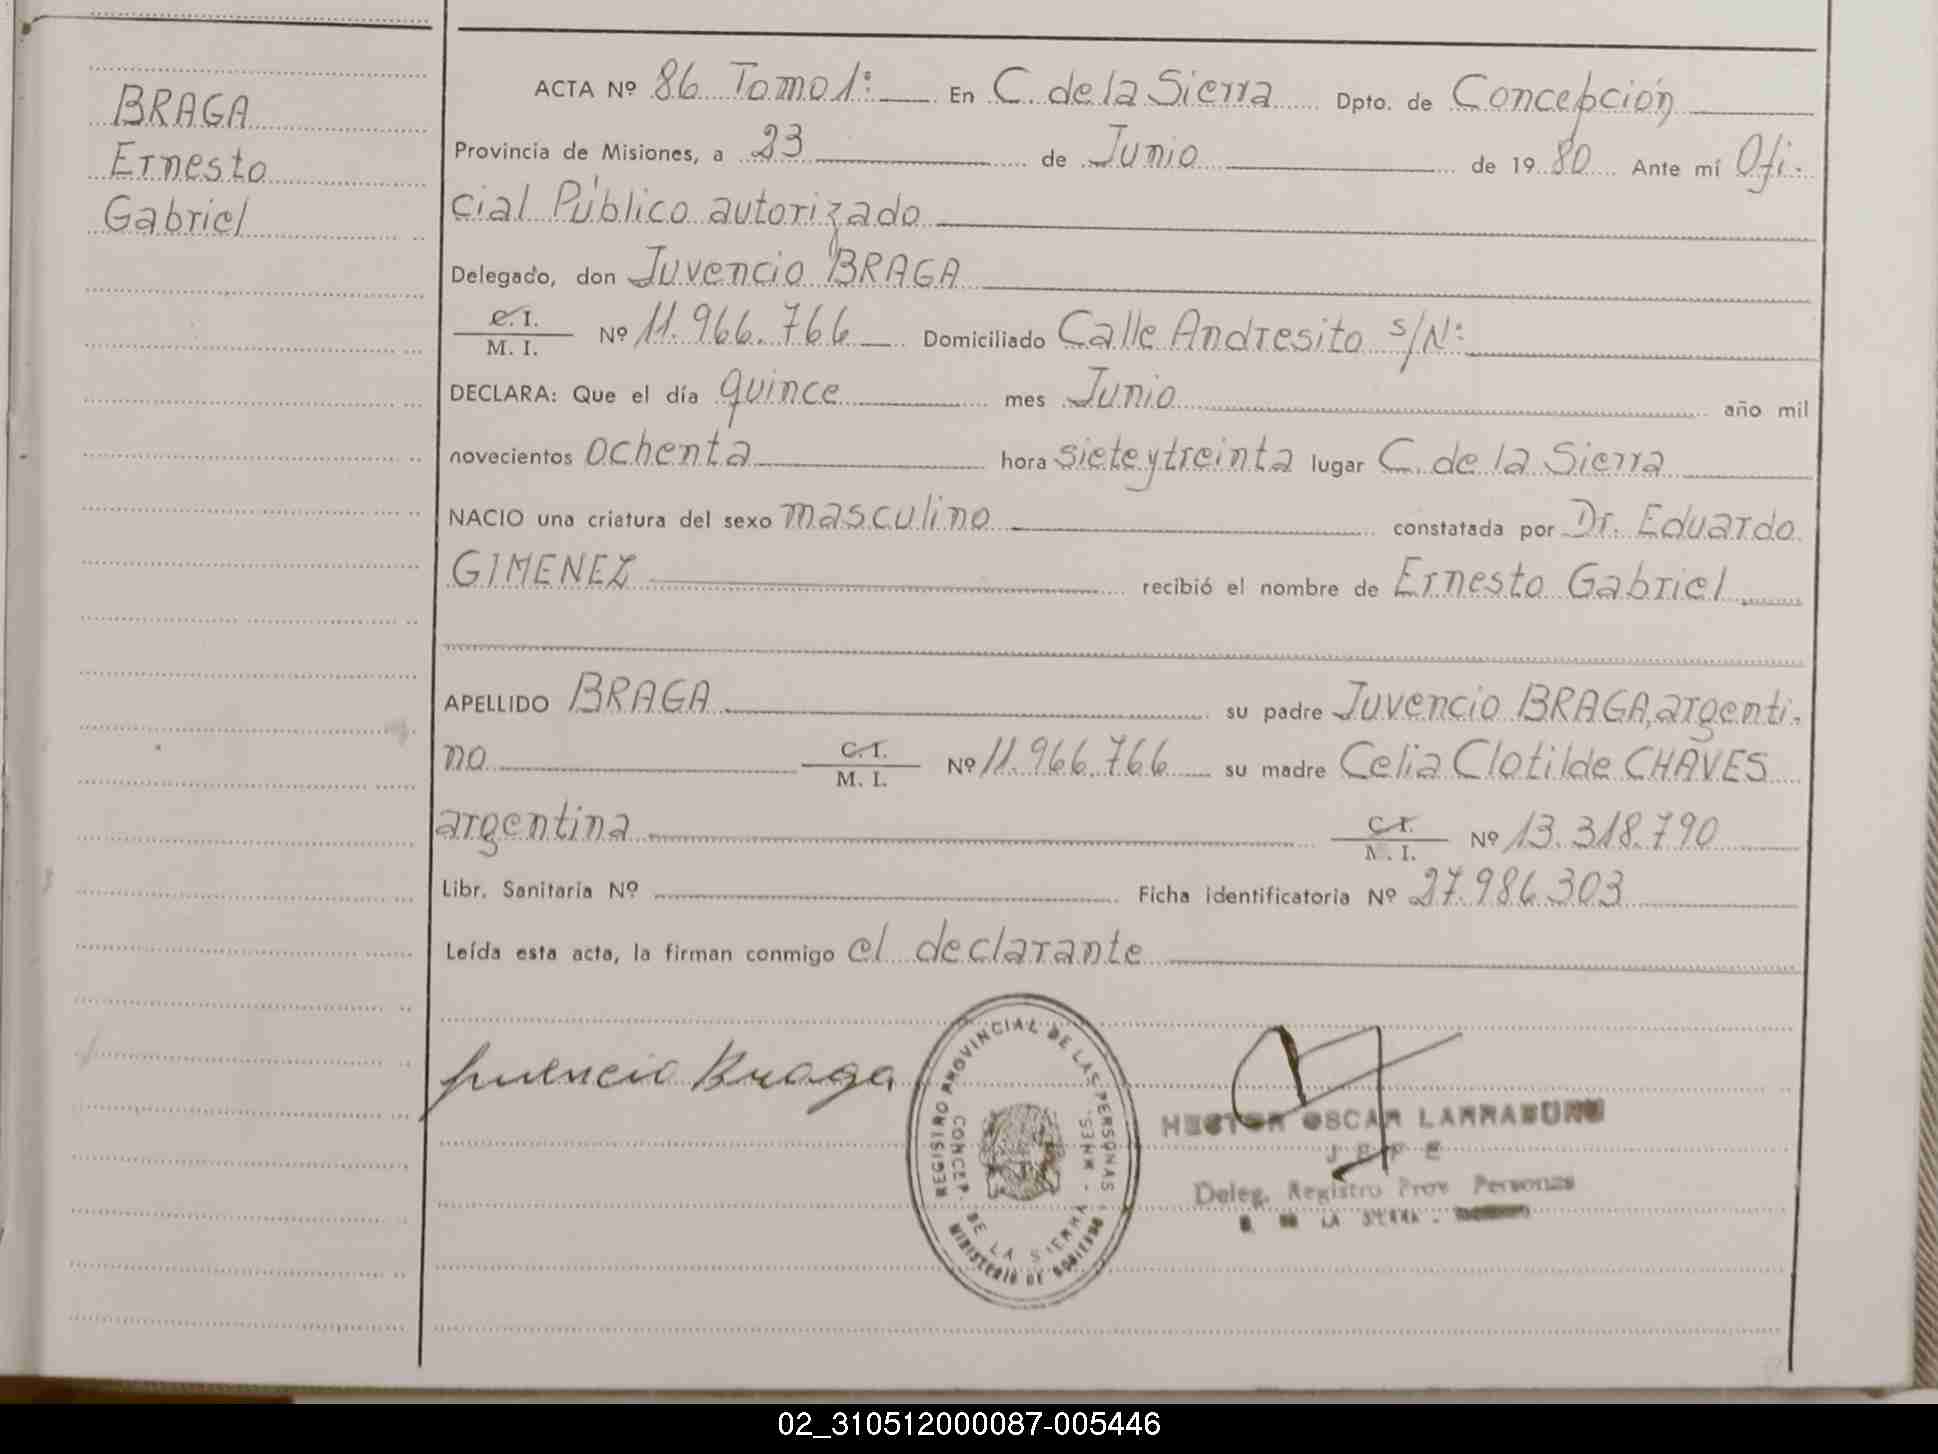 BRAGA
Ernesto
Gabriel
ACTA Nº 86 Tomo 1: En C. de la Sierra Dpto. de Concepción
Provincia de Misiones, a 23 de Junio de 1980 Ante mí Ofi-
cial Público autorizado
Delegado, don Juvencio BRAGA
C. I.
M. I. Nº 11.966.766 Domiciliado Calle Andresito s/N:
DECLARA: Que el día quince mes Junio año mil
novecientos ochenta hora siete y treinta lugar C. de la Sierra
NACIO una criatura del sexo masculino constatada por Dr. Eduardo
GIMENEZ recibió el nombre de Ernesto Gabriel
APELLIDO BRAGA su padre Juvencio BRAGA, argenti-
no C. I. M. I. Nº 11.966.766 su madre Celia Clotilde CHAVES
argentina C. I. M. I. Nº 13.318.790
Libr. Sanitaria Nº Ficha identificatoria Nº 27.986.303
Leída esta acta, la firman conmigo el declarante
Juvencio Braga
REGISTRO PROVINCIAL DE LAS PERSONAS
CONCEP. DE LA SIERRA - MNES.
MINISTERIO DE GOBIERNO
HECTOR OSCAR LARRABURU
JEFE
Deleg. Registro Prov. Personas
LA SIERRA -
02_310512000087-005446